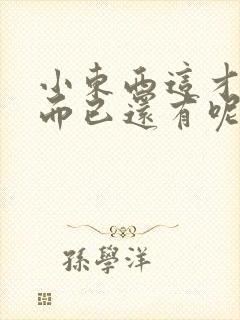 小東西這才
而已還有呢
孫學洋